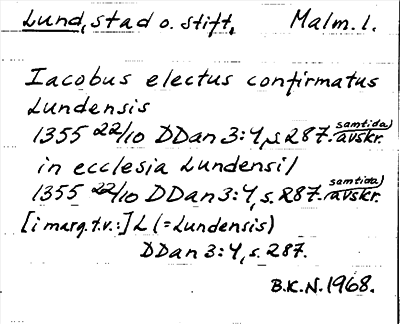 Lund, stad o. stift, Malm. l.
Iacobus electus confirmatus
Lundensis
1355 22/10 DDan 3:4, s. 287. samtida) avskr.
in ecclesia Lundensi/
1355 22/10 DDan 3:4, s. 287. samtida) avskr.
[i marg. t.v.:] L (=Lundensis)
DDan 3:4, s. 287.
B.K.N. 1968.